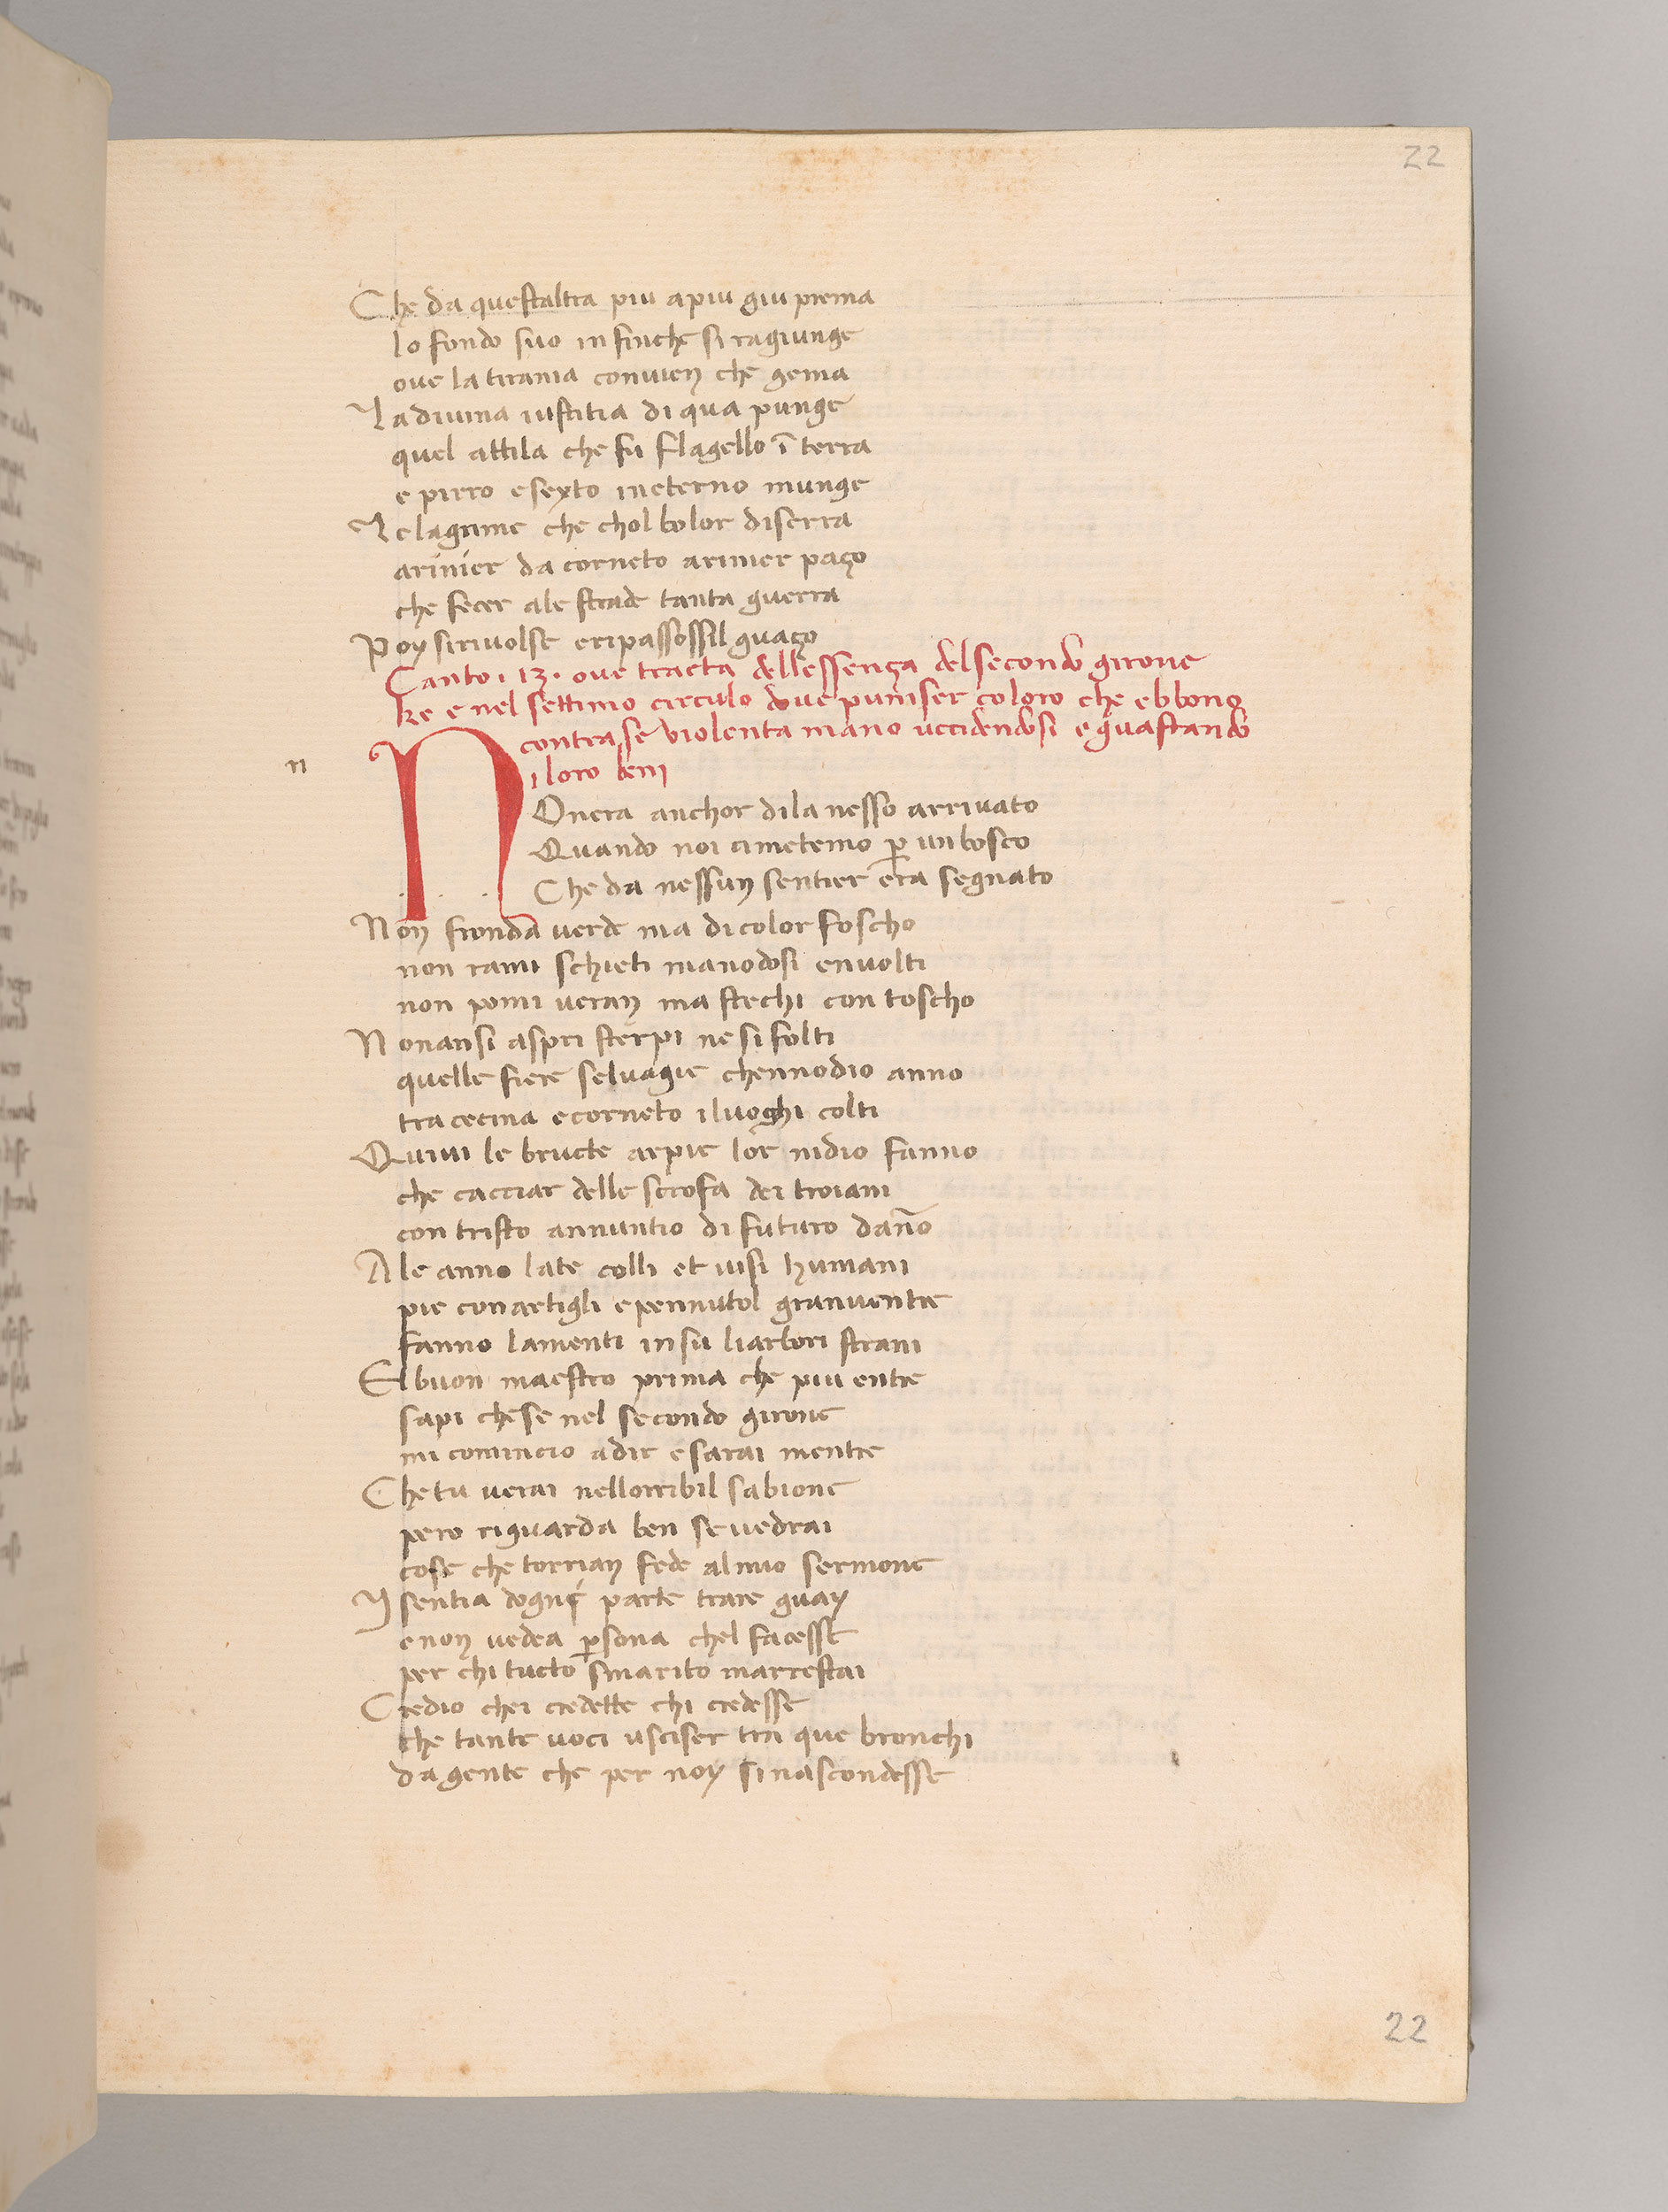 22
Che da questaltra piu apiu giu prema
lo fondo suo in finche si ragiunge
ove la tirania convien che gema
La divina iustitia di qua punge
quel attila che fu flagello ī terra
e pirro e sexto in eterno munge
Le lagrime che chol bolor diserra
arinier da corneto arinier paço
che fecer ale strade tanta guerra
Poy si rivolse eripassossil guaço
Canto . 13 . ove tracta dellessença del secondo girone
ke e nel settimo circulo dove puniser coloro che ebbono
contra se violenta mano uccidendosi e guastando
i loro beni
n
N
Onera anchor dila nesso arrivato
Quando noi cimetemo p̱ un bosco
Che da nessun sentier era segnato
Non fronda verde ma di color foscho
non rami schieti manodosi envolti
non pomi veran ma stechi con toscho
Nonansi aspri sterpi ne si folti
quelle fiere selvagie chennodio anno
tra cecina e corneto i luoghi colti
Quivi le bructe arpie lor nidio fanno
che cacciar delle scrofa dei troiani
con tristo annuntio di futuro dan̄o
Ale anno late colli et visi humani
pie con artigli e pennutol gran ventre
fanno lamenti in su li arbori strani
El buon maestro prima che piu entre
sapi che se nel secondo girone
mi comincio adir e sarai mentre
Che tu verai nellorribil sabione
pero riguarda ben se vedrai
cose che torrian fede al mio sermone
Y sentia dogne parte trare guay
e non vedea p̱sona chel facesse
per chi tucto smarito marrestai
Credio chei credette chi credesse
che tante voci usciser tra que bronchi
da gente che per noy si nascondesse
22